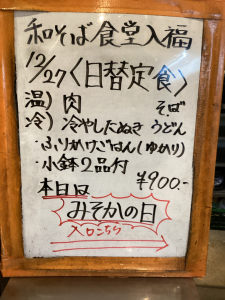 和そば食堂入福
12/27〈日替定食〉
温)肉 そば
冷)冷やしたぬき うどん
・ふりかけごはん(ゆかり)
・小鉢2品付
本日は ¥900.-
みそかの日
入口こちら